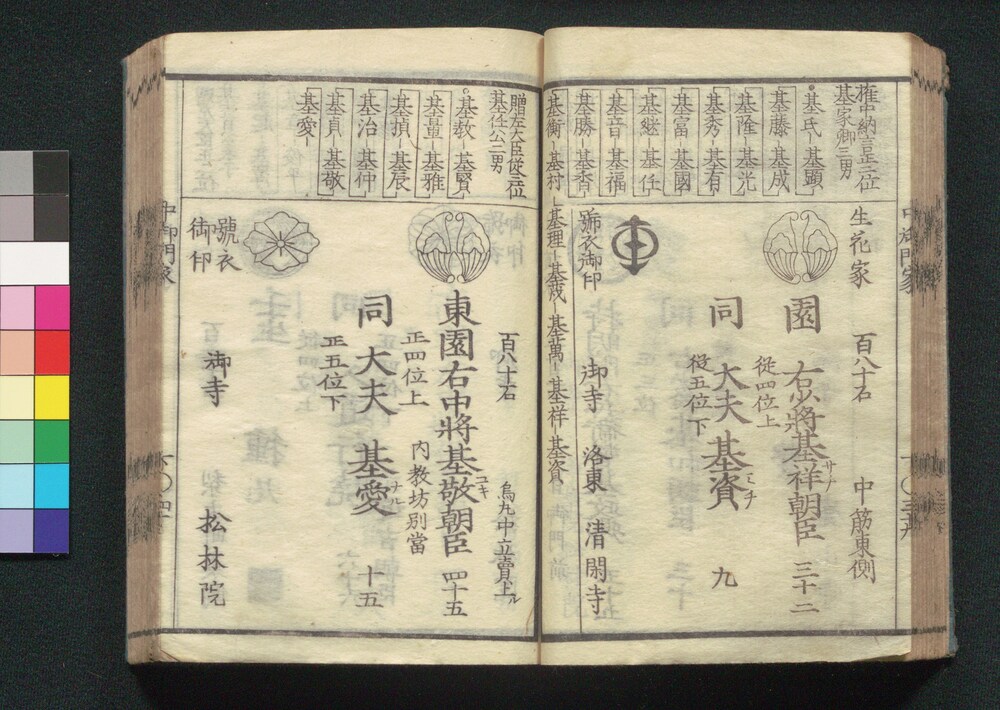 權中納言正三位
基家卿三男
基氏―基顕
基藤―基成
基隆―基光
基秀―基有
基富―基國
基継―基任
基音―基福
基勝―基香
基衡―基村―基理―基茂―基萬―基祥―基資
生花家 百八十石 中筋東側
園 右京將基祥朝臣 三十二
サチ
從四位上
同 大夫 基資 九
ミチ
從五位下
號衣御印 御寺 洛東 清閑寺
中御門家
贈左大臣從三位
基任公二男
基教―基賢
基量―基雅
基損―基辰
基治―基仲
基貞―基敬
基愛
百八十石 烏丸中立賣上ル
東園右中將基敬朝臣 四十五
ユキ
正四位上 内教坊別當
同 大夫 基愛 十五
ナル
正五位下
號衣
御印
御寺 松林院
中御門家